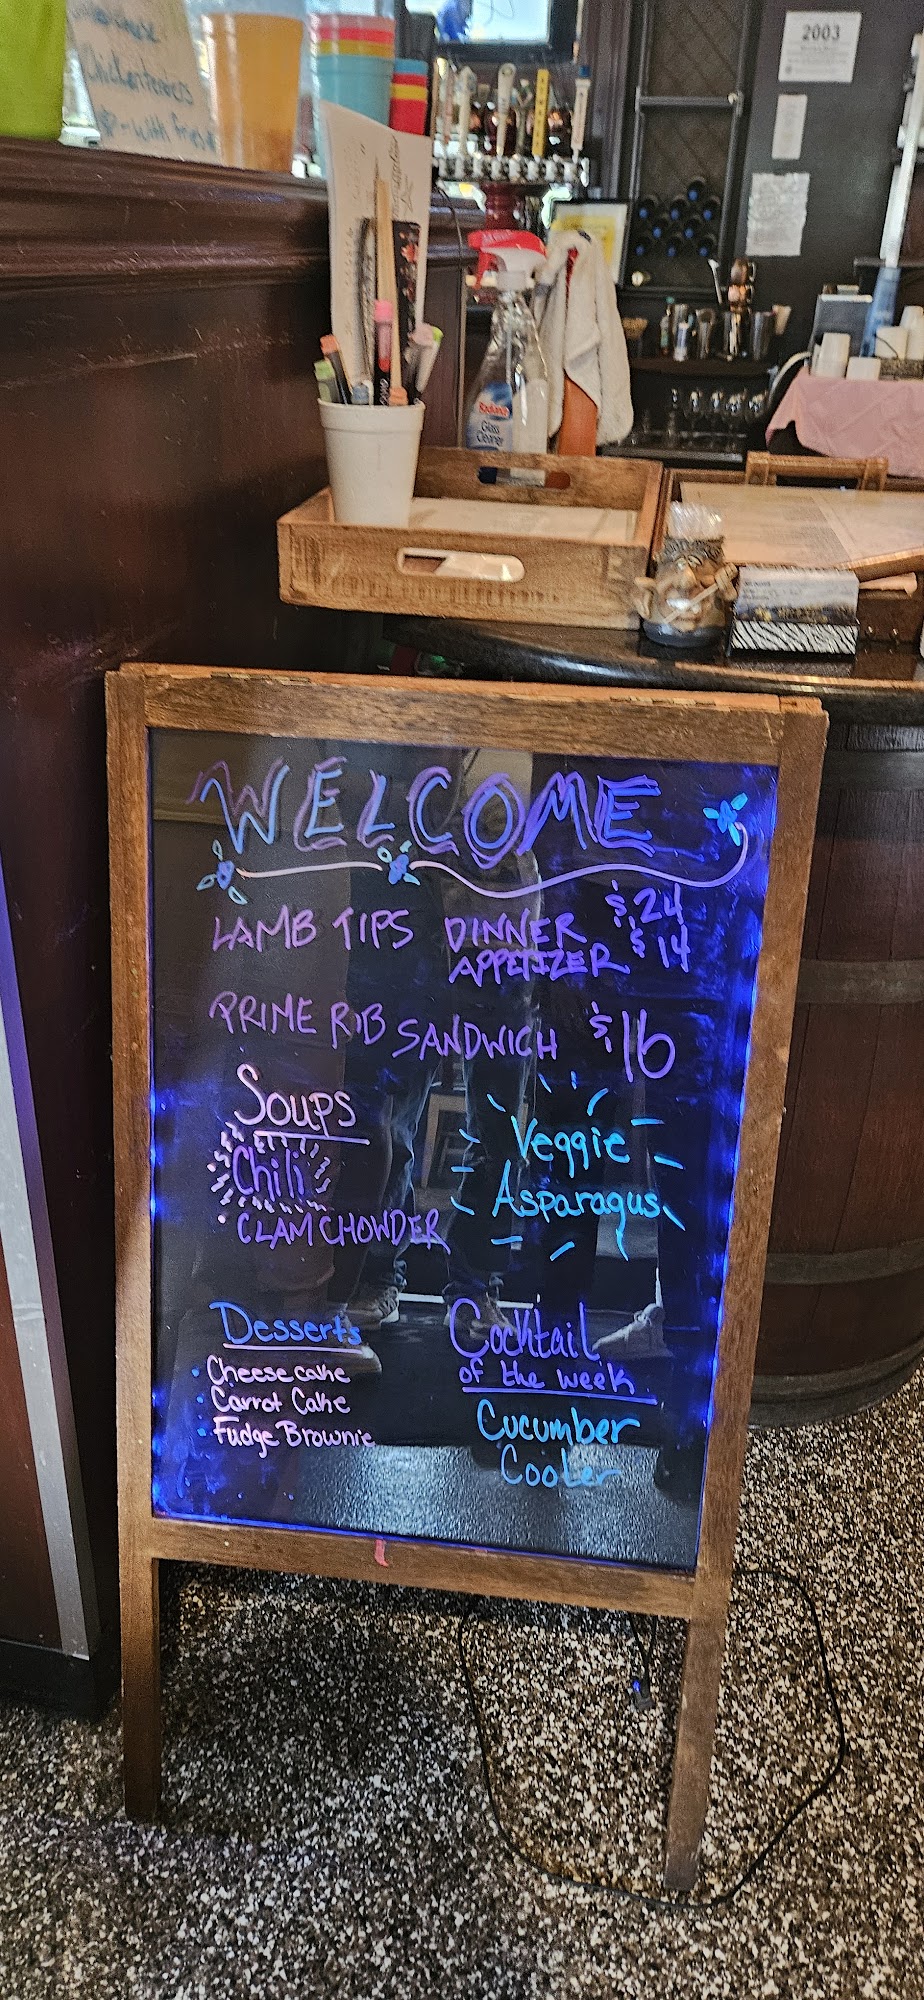 Chicken tenders
with fries
2003
Glass
Cleaner
WELCOME
LAMB TIPS DINNER $24
APPETIZER $14
PRIME RIB SANDWICH $16
Soups
Chili
CLAM CHOWDER
Veggie
Asparagus
Desserts
• Cheesecake
• Carrot Cake
• Fudge Brownie
Cocktail
of the week
Cucumber
Cooler